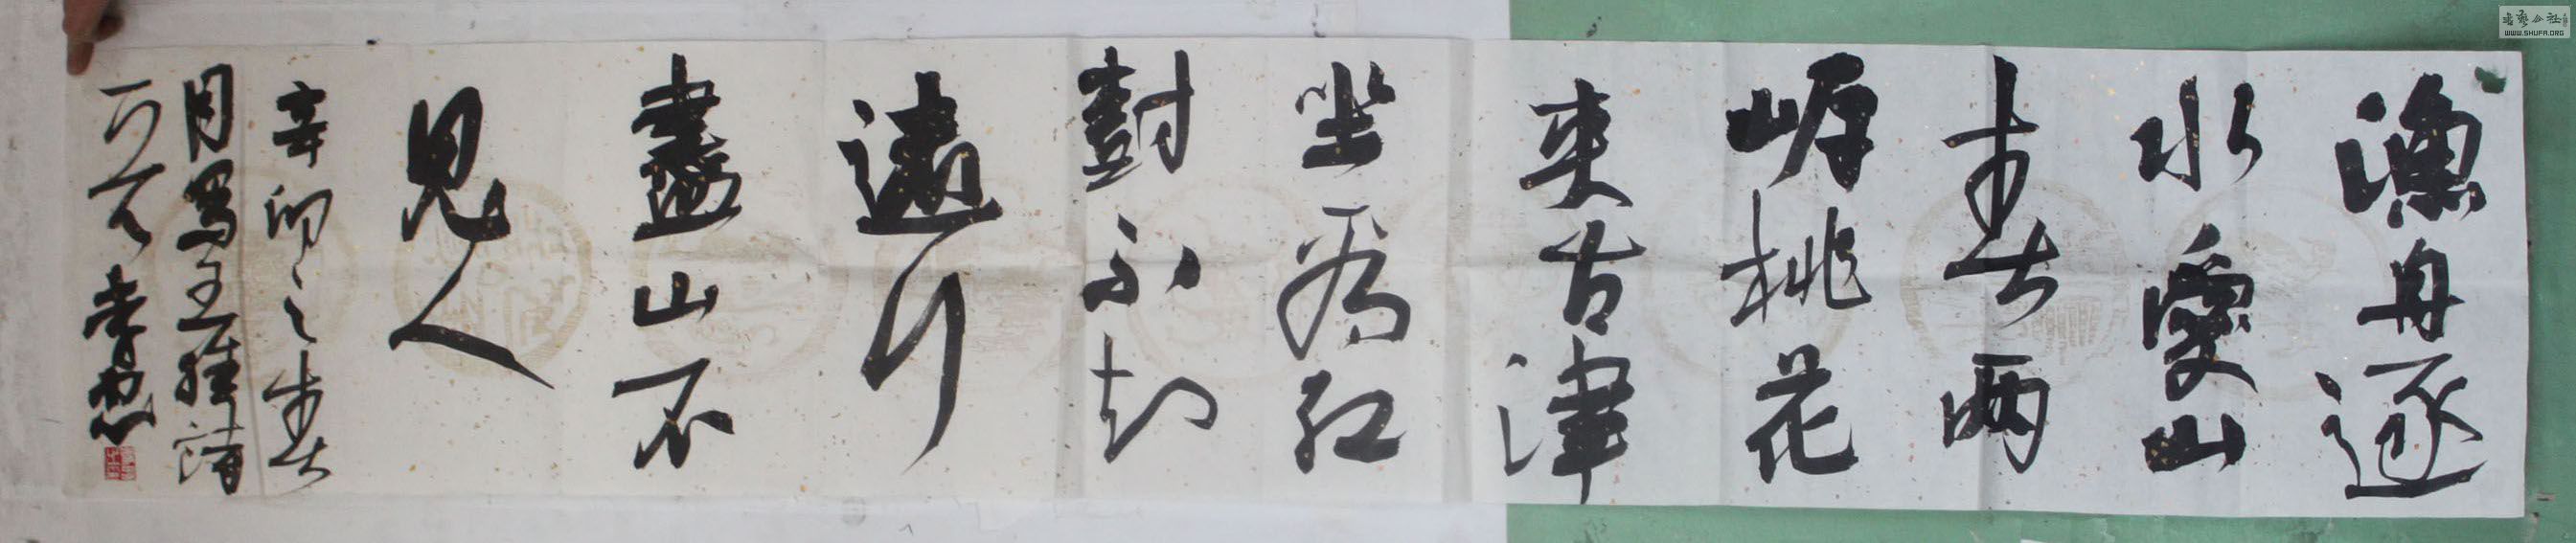 漁舟逐
水愛山
春兩
岸桃花
夾古津
坐看紅
尌不知
遠行
盡山不
見人
辛卯之春
月寫王維詩
書藝公社
WWW.SHUFA.ORG